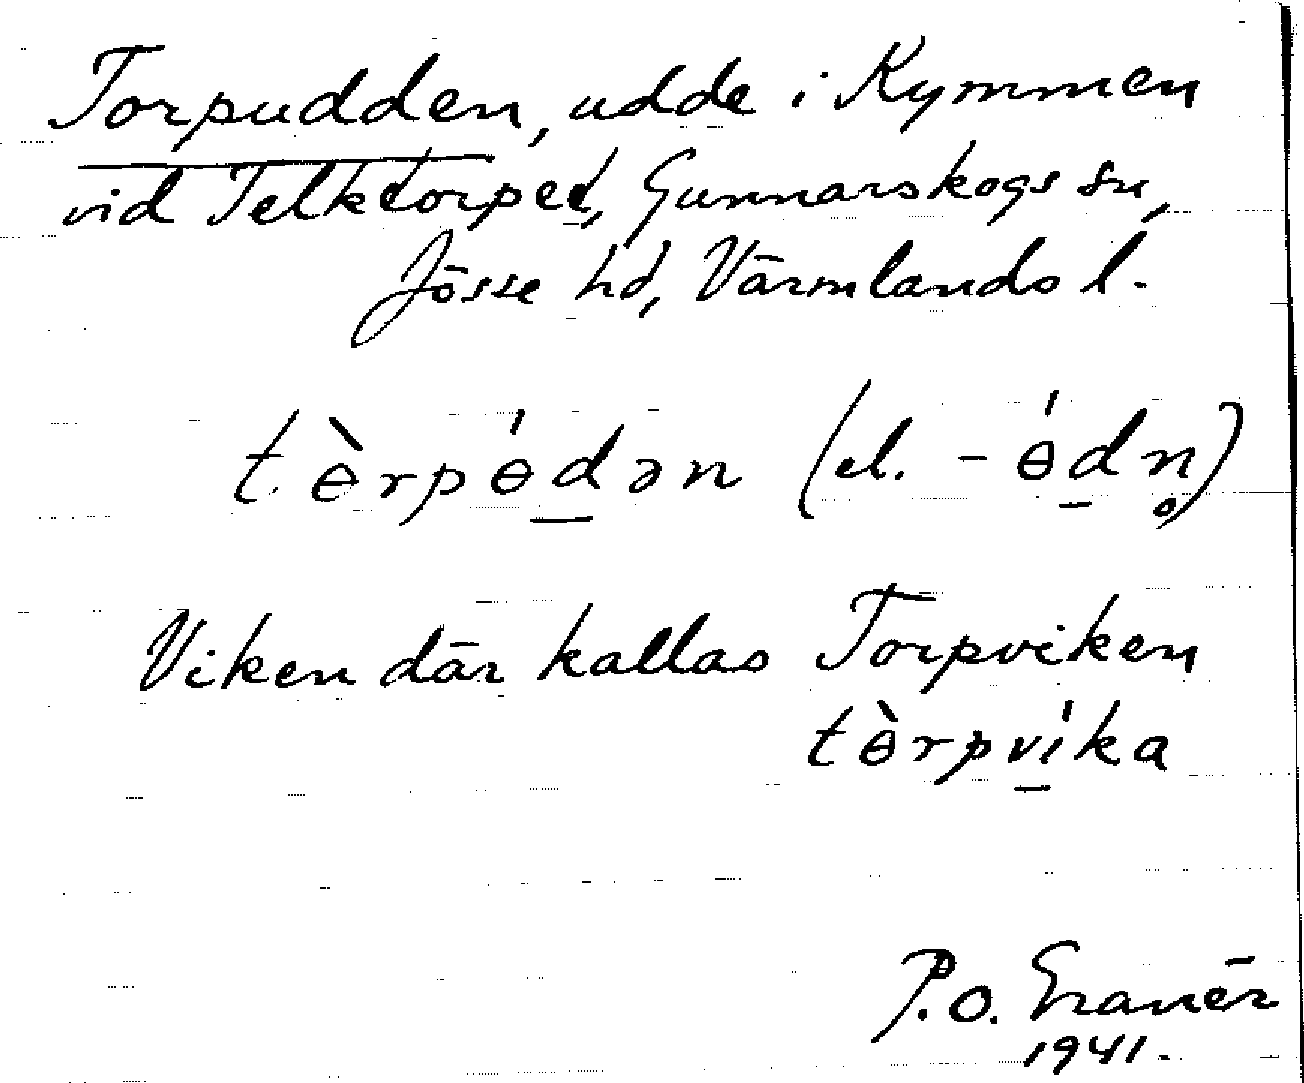 Torpudden, udde i Kymmen
vid Telktorpet, Gunnarskogs sn,
Jösse hd, Värmlands l.
t. ɵ̀rpɵ́dən (el. -ɵ́dn̥)
Viken där kallas Torpviken
tɵ̀rpvíka
P.O. Granér
1941.